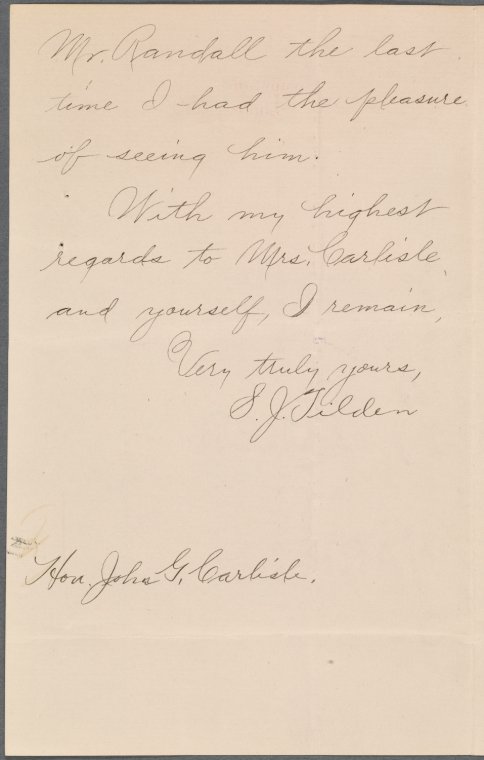 Mr. Randall the last
time I had the pleasure
of seeing him.
With my highest
regards to Mrs. Carlisle
and yourself, I remain,
Very truly yours,
S. J. Tilden
Hon. John G. Carlisle.